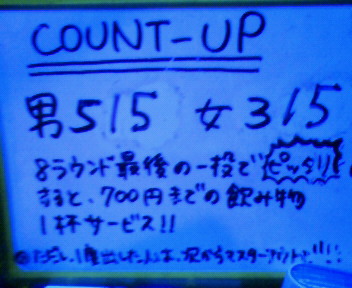 COUNT-UP
男515 女315
8ラウンド最後の一投でピッタリ!
すると、700円までの飲み物
1杯サービス!!
ただし、1度出した人は、次からマスター